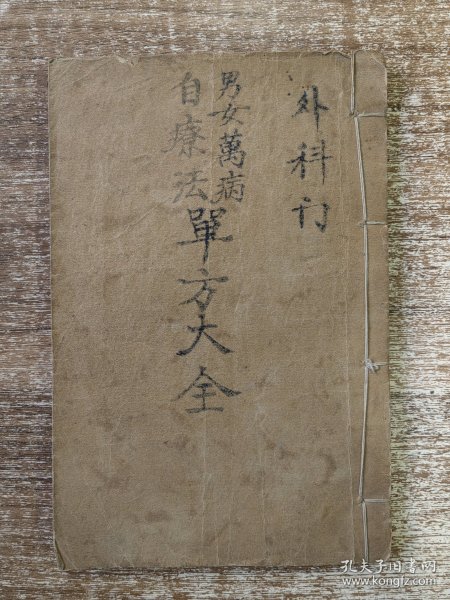 外科刀
男女萬病
自療法單方大全
孔夫子旧书网
www.kongfz.com